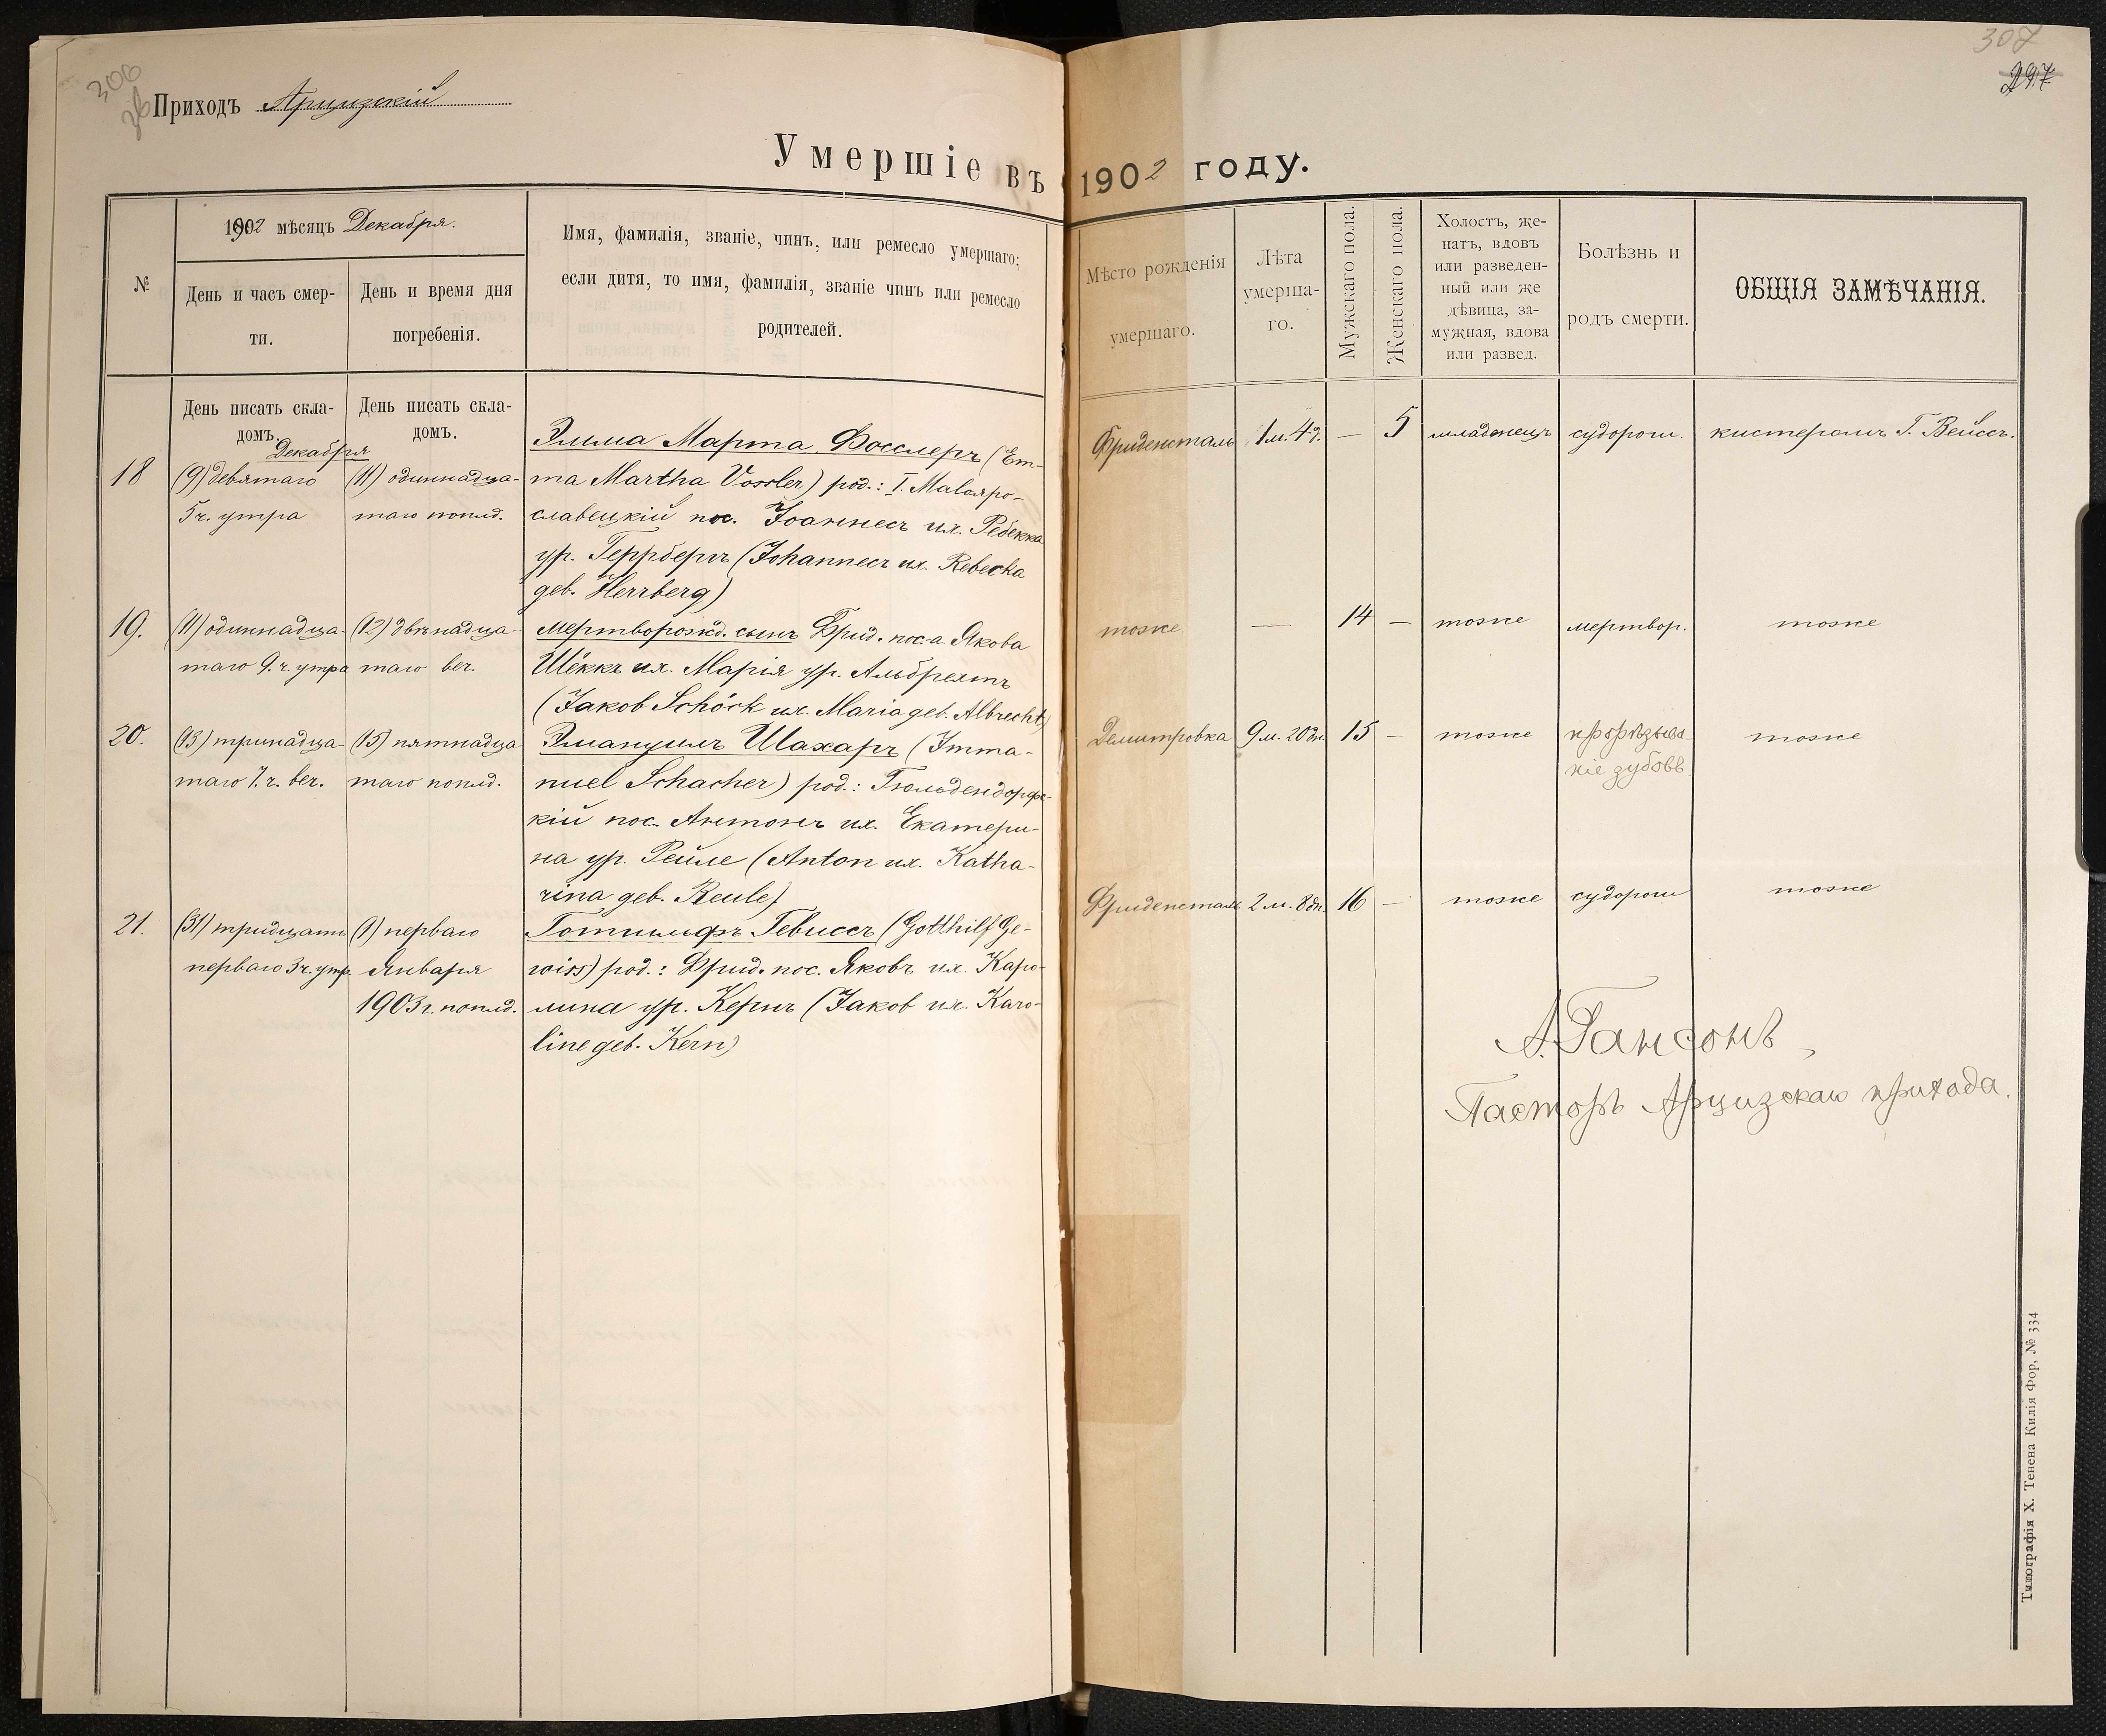 306
Приходъ Арцизскій
307
297
Умершіе въ 1902 году.
№
1902 мѣсяцъ Декабря.
День и часъ смер-
ти.
День и время дня
погребенія.
Имя, фамилія, званіе, чинъ, или ремесло умершаго;
если дитя, то имя, фамилія, званіе чинъ или ремесло
родителей.
Мѣсто рожденія
умершаго.
Лѣта
умерша-
го.
Мужскаго пола.
Женскаго пола.
Холостъ, же-
натъ, вдовъ
или разведен-
ный или же
дѣвица, за-
мужная, вдова
или развед.
Болѣзнь и
родъ смерти.
ОБЩІЯ ЗАМѢЧАНІЯ.
День писать скла-
домъ.
День писать скла-
домъ.
Декабря
18
(9) девятаго
5 ч. утра
(11) одиннадца-
таго попмд.
Эмма Марта Фосслеръ (Em-
ma Martha Vossler) род.: I. Малояро-
славецкій пос. Іоаннесъ их. Ребекка
ур. Геррбергъ (Johannecъ их. Rebecka
geb. Herrberg)
Фриденсталь
1 м. 4 д.
—
5
младенецъ
судороги.
кистеромъ Г. Вейссъ.
19.
(11) одиннадца-
таго 9. ч. утра
(12) двѣнадца-
таго веч.
мертворожд. сынъ Фрид. пос-а Якова
Шёккъ их. Марія ур. Альбрехтъ
(Jakob Schöck их. Maria geb. Albrecht)
тоже
—
14
—
тоже
мертвор.
тоже
20.
(13) тринадца-
таго 7. ч. веч.
(15) пятнадца-
таго попмд.
Эмануилъ Шахаръ (Imma-
nuel Schacher) род.: Гюльдендорфс-
кій пос. Антонъ их. Екатери-
на ур. Рейле (Anton их. Katha-
rina geb. Reule)
Демитровка
9 м. 20 дн.
15
—
тоже
прорѣзыва-
ніе зубовъ
тоже
21.
(31) тридцать
перваго 3 ч. утр.
(1) перваго
Января
1903 г. попмд.
Готтильфъ Гевиссъ (Gotthilf Ge-
wiss) род.: Фрид. пос. Яковъ их. Каро-
лина ур. Кернъ (Jakob их. Karo-
line geb. Kern)
Фриденсталь
2 м. 8 дн.
16
—
тоже
судороги
тоже
А. Гансонъ
Пасторъ Арцизскаго прихода.
Типографія Х. Тенена Килія Фор, № 334